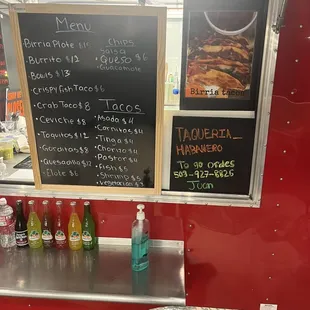 Menu
Birria Plate $15
Burrito $12
Bowls $13
Crispy fish Taco $
Crab Taco $8
Ceviche $
Taquitos $12
Gorditas $8
Quesadilla $12
Elote $6
Chips
Salsa
Queso $6
Guacamole
Tacos
Asada $4
Carnitas $4
Tinga $4
Chorizo $4
Pastor $4
Fish $
Shrimp $
Vegetarian
Birria tacos
TAQUERIA
HABANERO
To go Ordes
503-927-8825
Juan